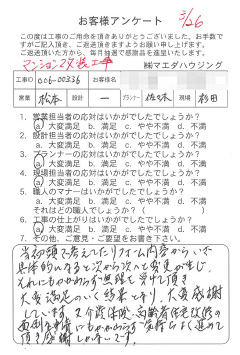 お客様アンケート
3/26
この度は工事のご用命を頂きありがとうございました。お手数で
すがご記入頂き、ご返送頂きますようお願い申し上げます。
ご返送頂いた方から、毎月抽選で感謝品を進呈いたします。
マンション改装工事
㈱マエダハウジング
工事ID 006-00336 お客様名
営業 松本 設計 ー プランナー 佐々木 現場 杉田
1. 営業担当者の応対はいかがでしたでしょうか?
a 大変満足 b. 満足 c. やや不満 d. 不満
2. 設計担当者の応対はいかがでしたでしょうか?
a. 大変満足 b. 満足 c. やや不満 d. 不満
3. プランナーの応対はいかがでしたでしょうか?
a 大変満足 b. 満足 c. やや不満 d. 不満
4. 現場担当者の応対はいかがでしたでしょうか?
a 大変満足 b. 満足 c. やや不満 d. 不満
5. 職人のマナーはいかがでしたでしょうか?
a 大変満足 b. 満足 c. やや不満 d. 不満
それはどの職人でしょうか?( )
6. 工事の仕上がりはいかがでしたでしょうか?
a 大変満足 b. 満足 c. やや不満 d. 不満
7. その他、ご意見・ご要望をお書き下さい。
当初頭で考えてたリフォーム内容から
具体的になると次から次へと変更が生じ
それにもかかわらず
大変満足のいく結果となり、大変感謝
しています。又介護保険、高齢者住宅改修の
面倒な
頂き感謝